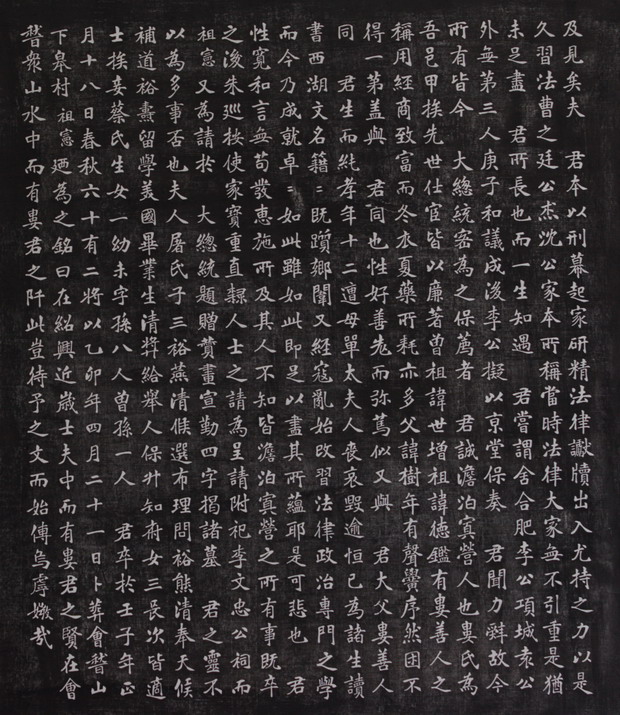 及見矣夫　君本以刑幕起家研精法律讞牘出入尤持之力以是
久習法曹之廷公杰沈公家本所稱當時法律大家無不引重是猶
未足盡　君所長也而一生知遇　君嘗謂舍合肥李公項城袁公
外無第三人庚子和議成後李公擬以京堂保奏　君聞力辭故今
所有皆今　大總統密為之保薦者　君誠澹泊寡營人也婁氏為
吾邑甲族先世仕宦皆以廉著曾祖諱世增祖諱德鑑有婁善人之
稱用經商致富而冬衣夏藥所耗亦多父諱樹年有聲黌序然困不
得一第蓋與　君同也性好善老而弥篤似又與　君大父婁善人
同　君生而純孝年十二遭母單太夫人喪哀毀逾恒已為諸生讀
書西湖文名籍〻既躓鄉闈又經寇亂始改習法律政治專門之學
而今乃成就卓〻如此雖如此即足以盡其所蘊耶是可悲也　君
性寬和言無苟發惠施所及其人不知皆澹泊寡營之所有事既卒
之後朱巡按使家寶重直隸人士之請為呈請附祀李文忠公祠而
祖憲又為請於　大總統題贈贊畫宣勤四字揭諸墓　君之靈不
以為多事否也夫人屠氏子三裕燕清候選布理問裕熊清奉天候
補道裕燾留學美國畢業生清獎給舉人保升知府女三長次皆適
士族妾蔡氏生女一幼未字孫八人曾孫一人　君卒於壬子年正
月十八日春秋六十有二將以乙卯年四月二十一日卜葬會稽山
下皋村　祖憲廼為之銘曰在紹興近歲士夫中而有婁君之賢在會
稽衆山水中而有婁君之阡此豈待予之文而始傳烏虖媺哉